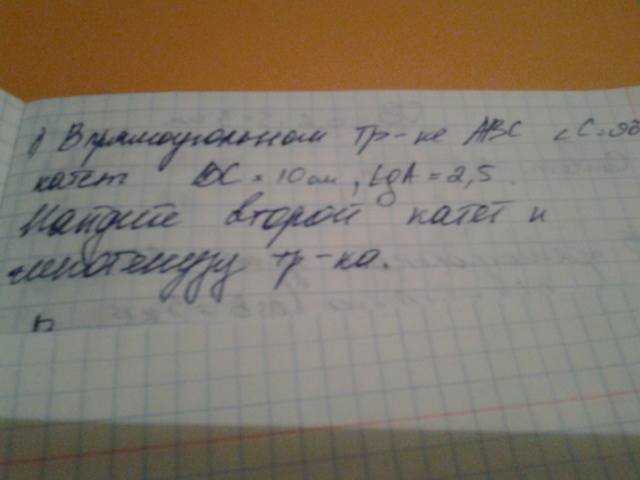 1) В прямоугольном тр-ке ABC ∠C=90
катет = 10 см, tgA = 2,5.
Найдите второй катет и
гипотенузу тр-ка.